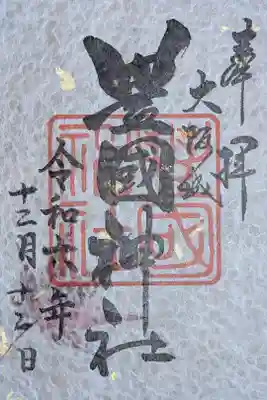 奉拝
大阪城
豊國神社
令和六年
十二月十二日